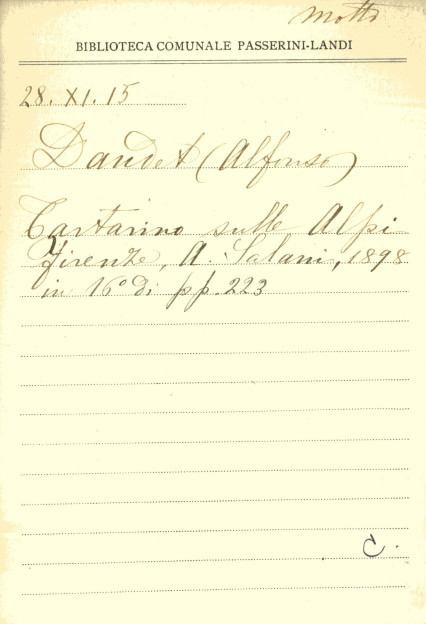 Motto
BIBLIOTECA COMUNALE PASSERINI-LANDI
28. XI. 15
Daudet (Alfonso)
Tartarino sulle Alpi
Firenze, A. Salani, 1898
in 16° di pp. 223
C.